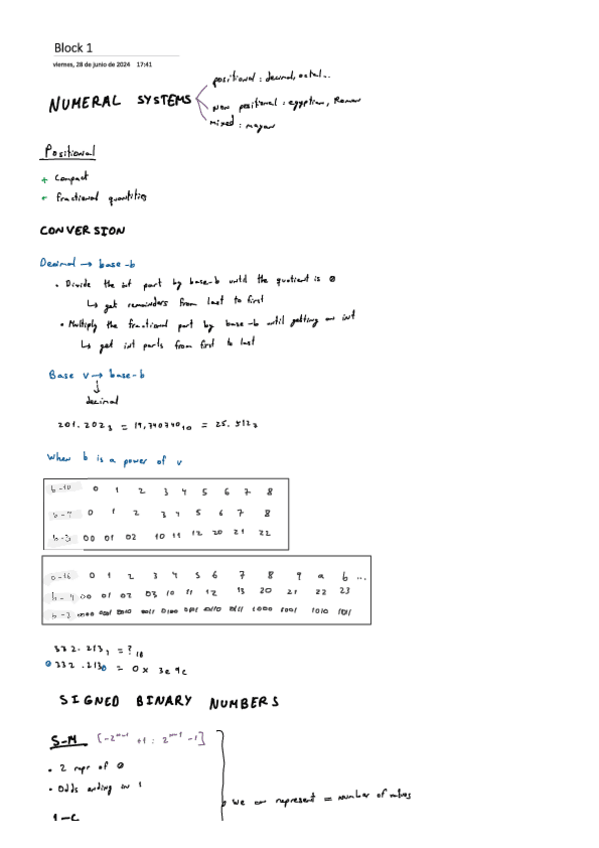 Block 1
viernes, 28 de junio de 2024 17:41
NUMERAL SYSTEMS
positional : decimal, octal...
Non positional : egyptian, Roman
mixed : mayan
Positional
+ Compact
fractional quantities
CONVERSION
Decimal → base-b
• Divide the int part by base-b until the quotient is 0
↳ get remainders from last to first
• Multiply the fractional part by base-b until getting an int
↳ get int parts from first to last
Base v → base-b
↓
decimal
201.202₃ = 19,740740₁₀ = 25.512₇
When b is a power of v
b-10 0 1 2 3 4 5 6 7 8
0 1 2 3 4 5 6 7 8
b-3 00 01 02 10 11 12 20 21 22
0 1 2 3 4 5 6 7 8 9 a b ...
b-4 00 01 02 03 10 11 12 13 20 21 22 23
0000 0001 0010 0011 0100 0101 0110 0111 1000 1001 1010 1011
= 0x 3e9c
SIGNED BINARY NUMBERS
S-M [-2ⁿ⁻¹ +1 : 2ⁿ⁻¹ -1]
• 2 repr of 0
• Odds ending in 1
we can represent = number of
1-C